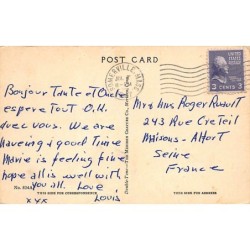 POST CARD
Bonjour Tante et Oncle
espere Tout O.K.
avec vous. We are
having a good Time
Marie is feeling fine
hope all is well with
you all. Love
xxx Louis
3 CENTS 3
Mr & Mrs Roger
243 Rue Creteil
Maisons-Alfort
Seine
France
THIS SIDE FOR CORRESPONDENCE
THIS SIDE FOR ADDRESS